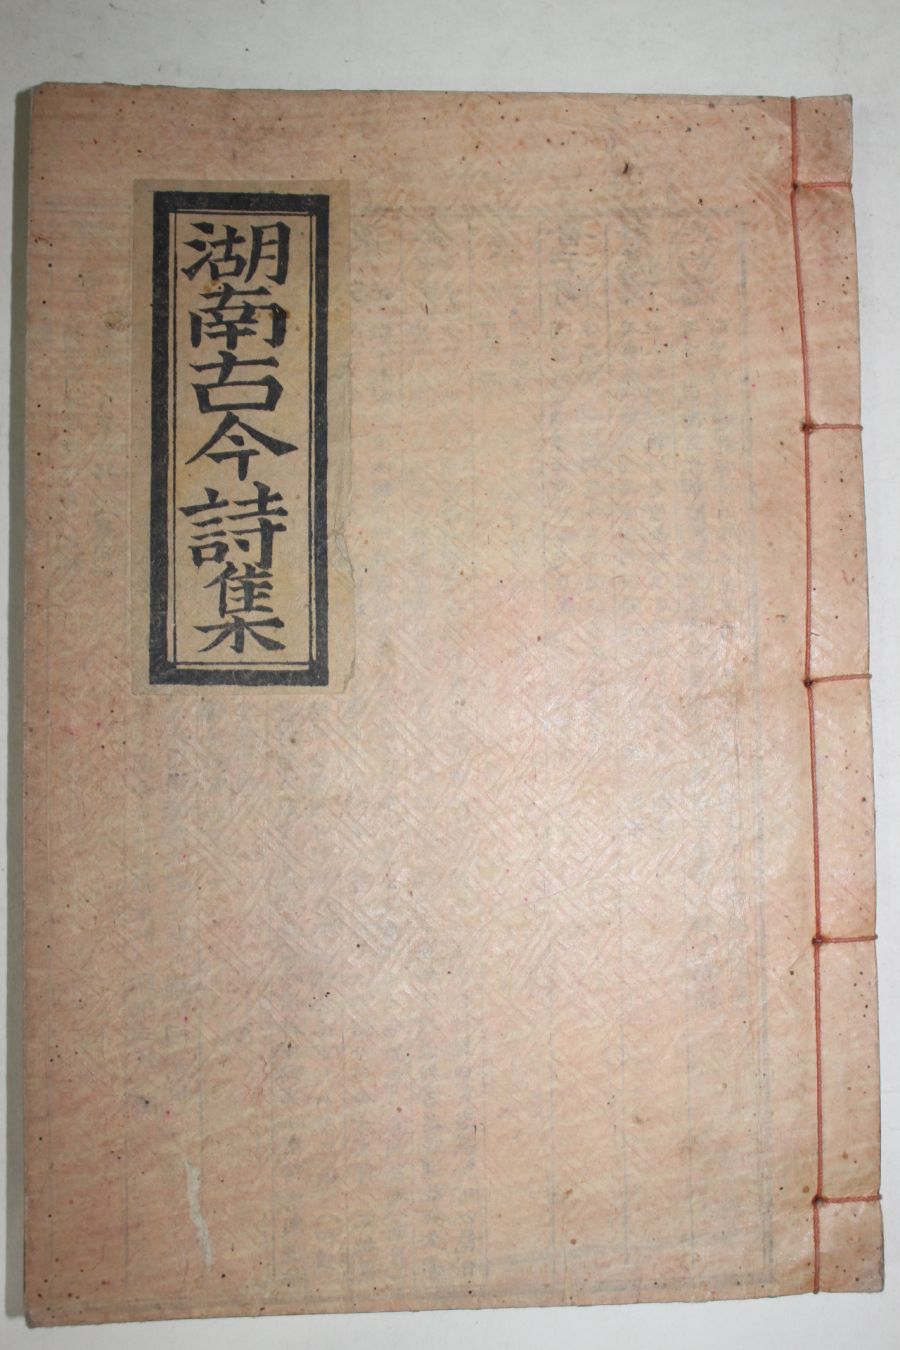 湖南古今詩集